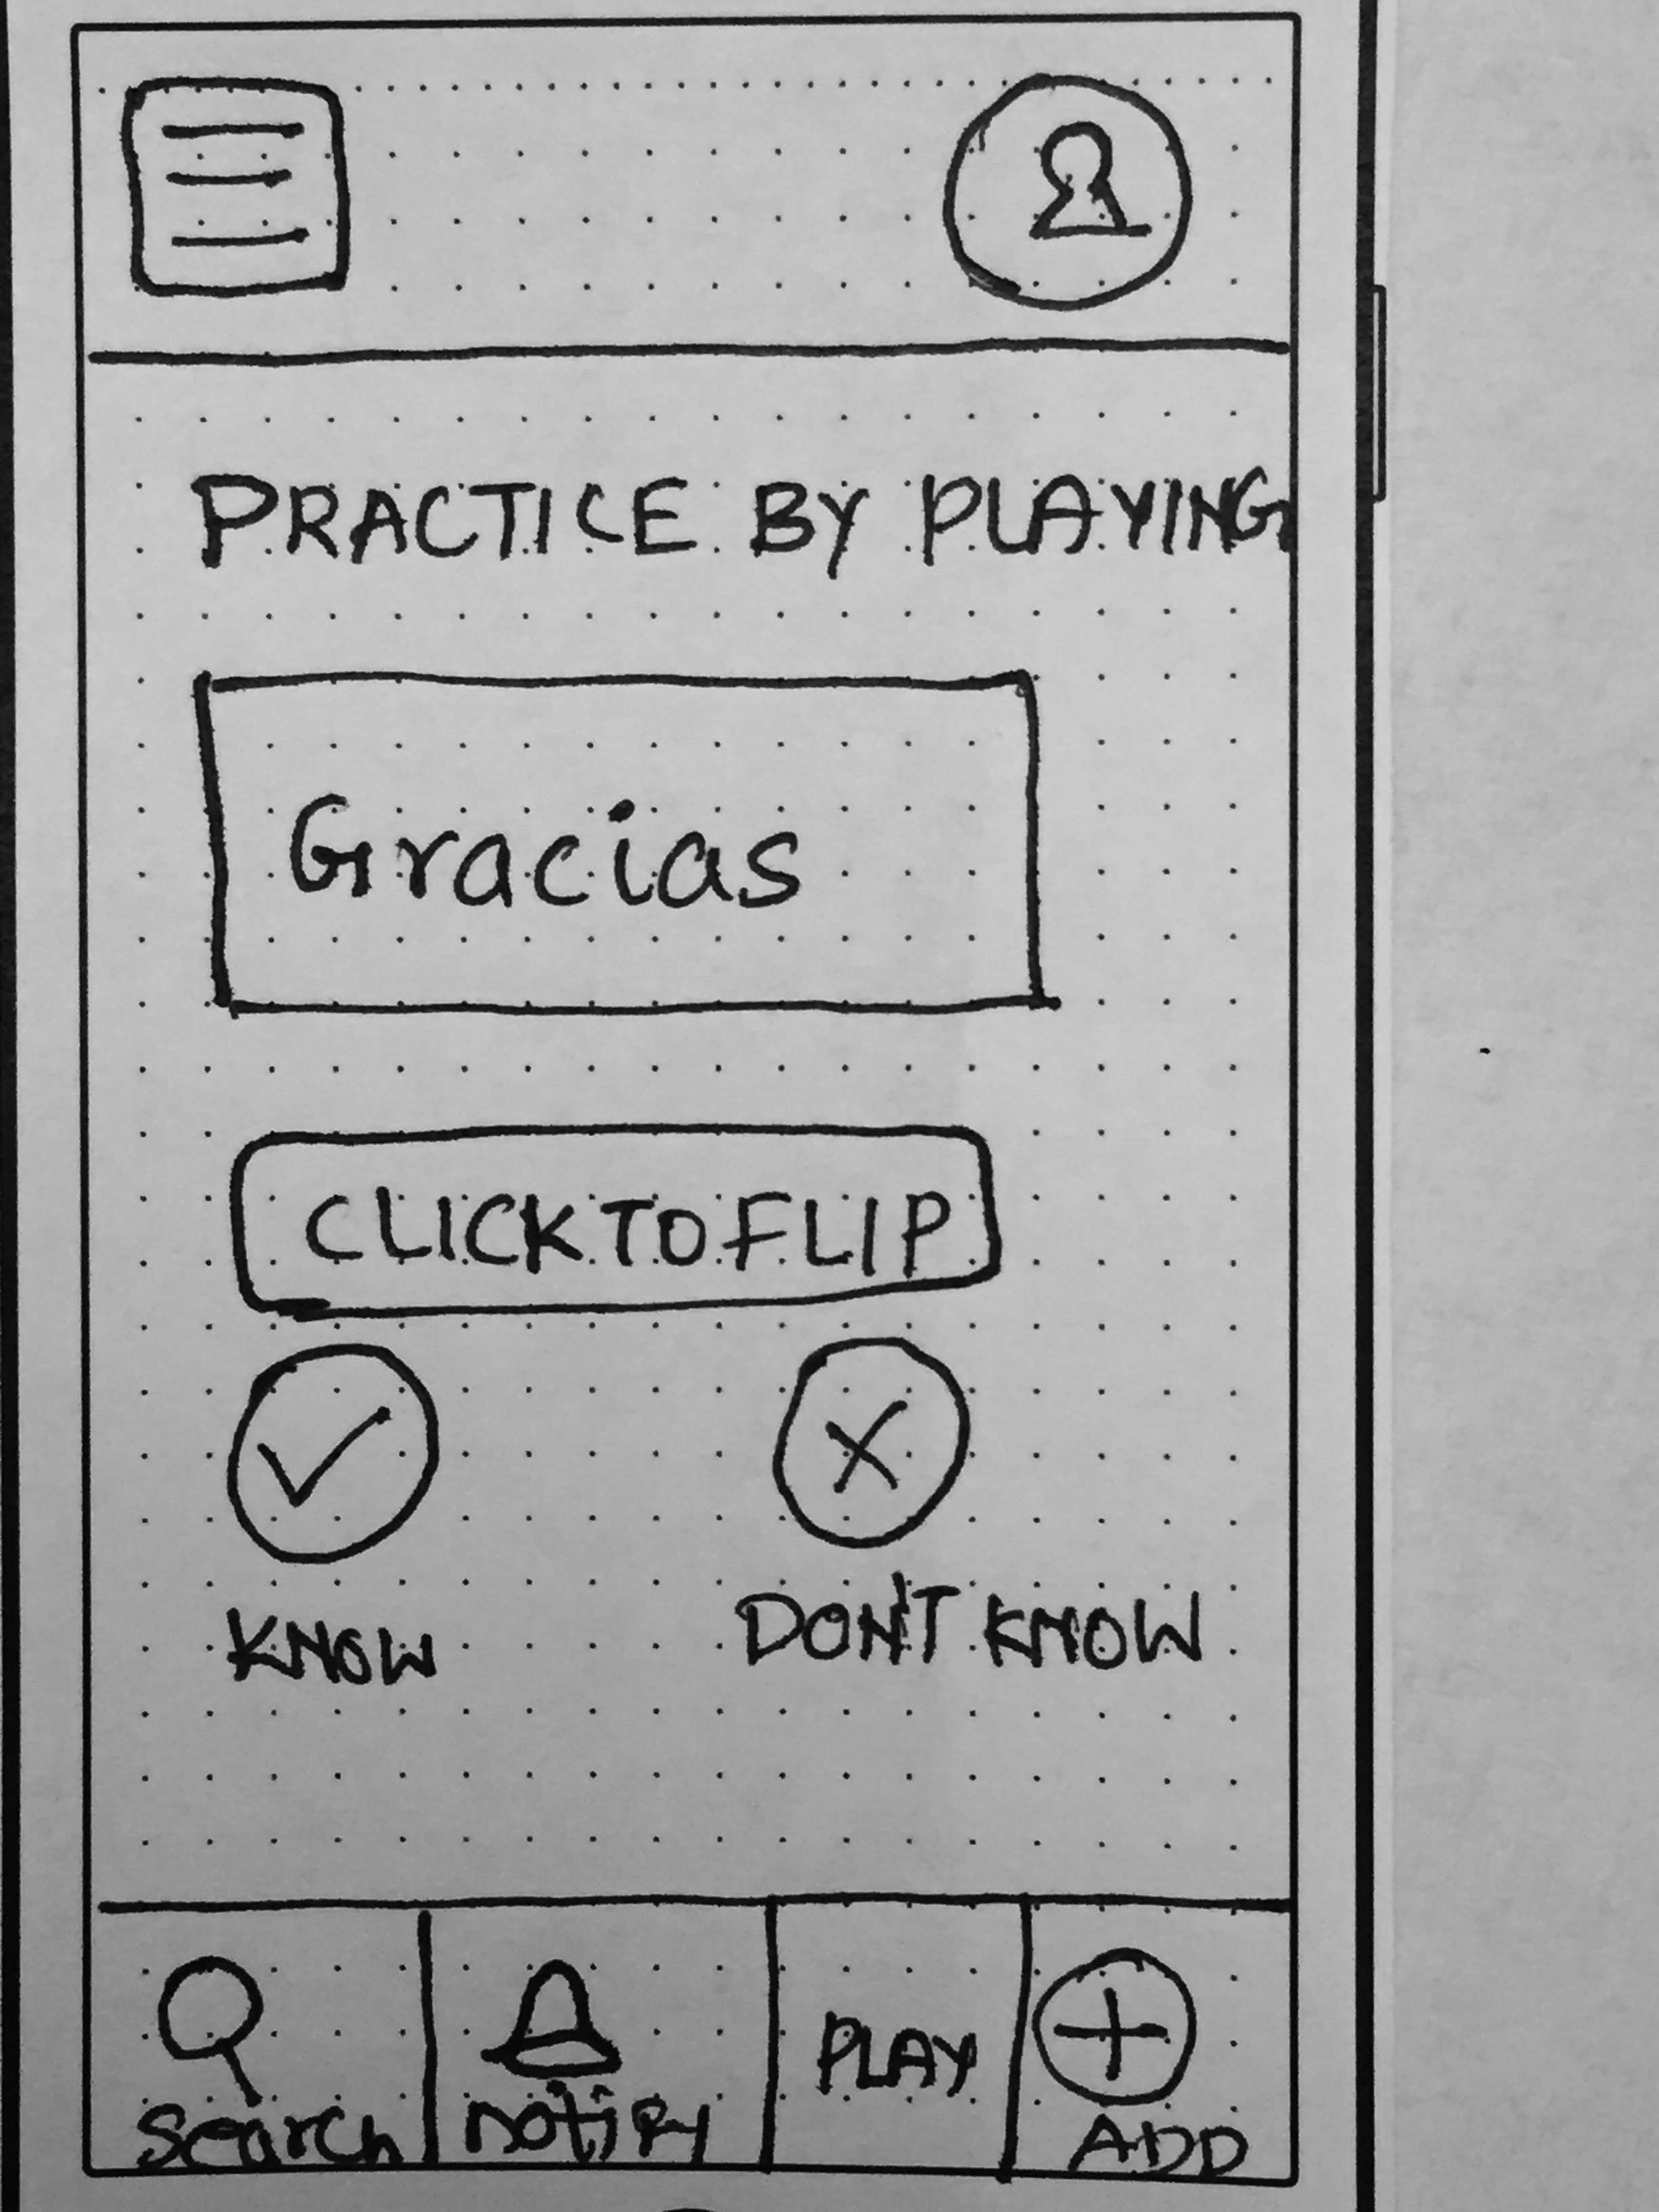 PRACTICE BY PLAYING
Gracias
CLICK TO FLIP
KNOW DON'T KNOW
search notify PLAY ADD